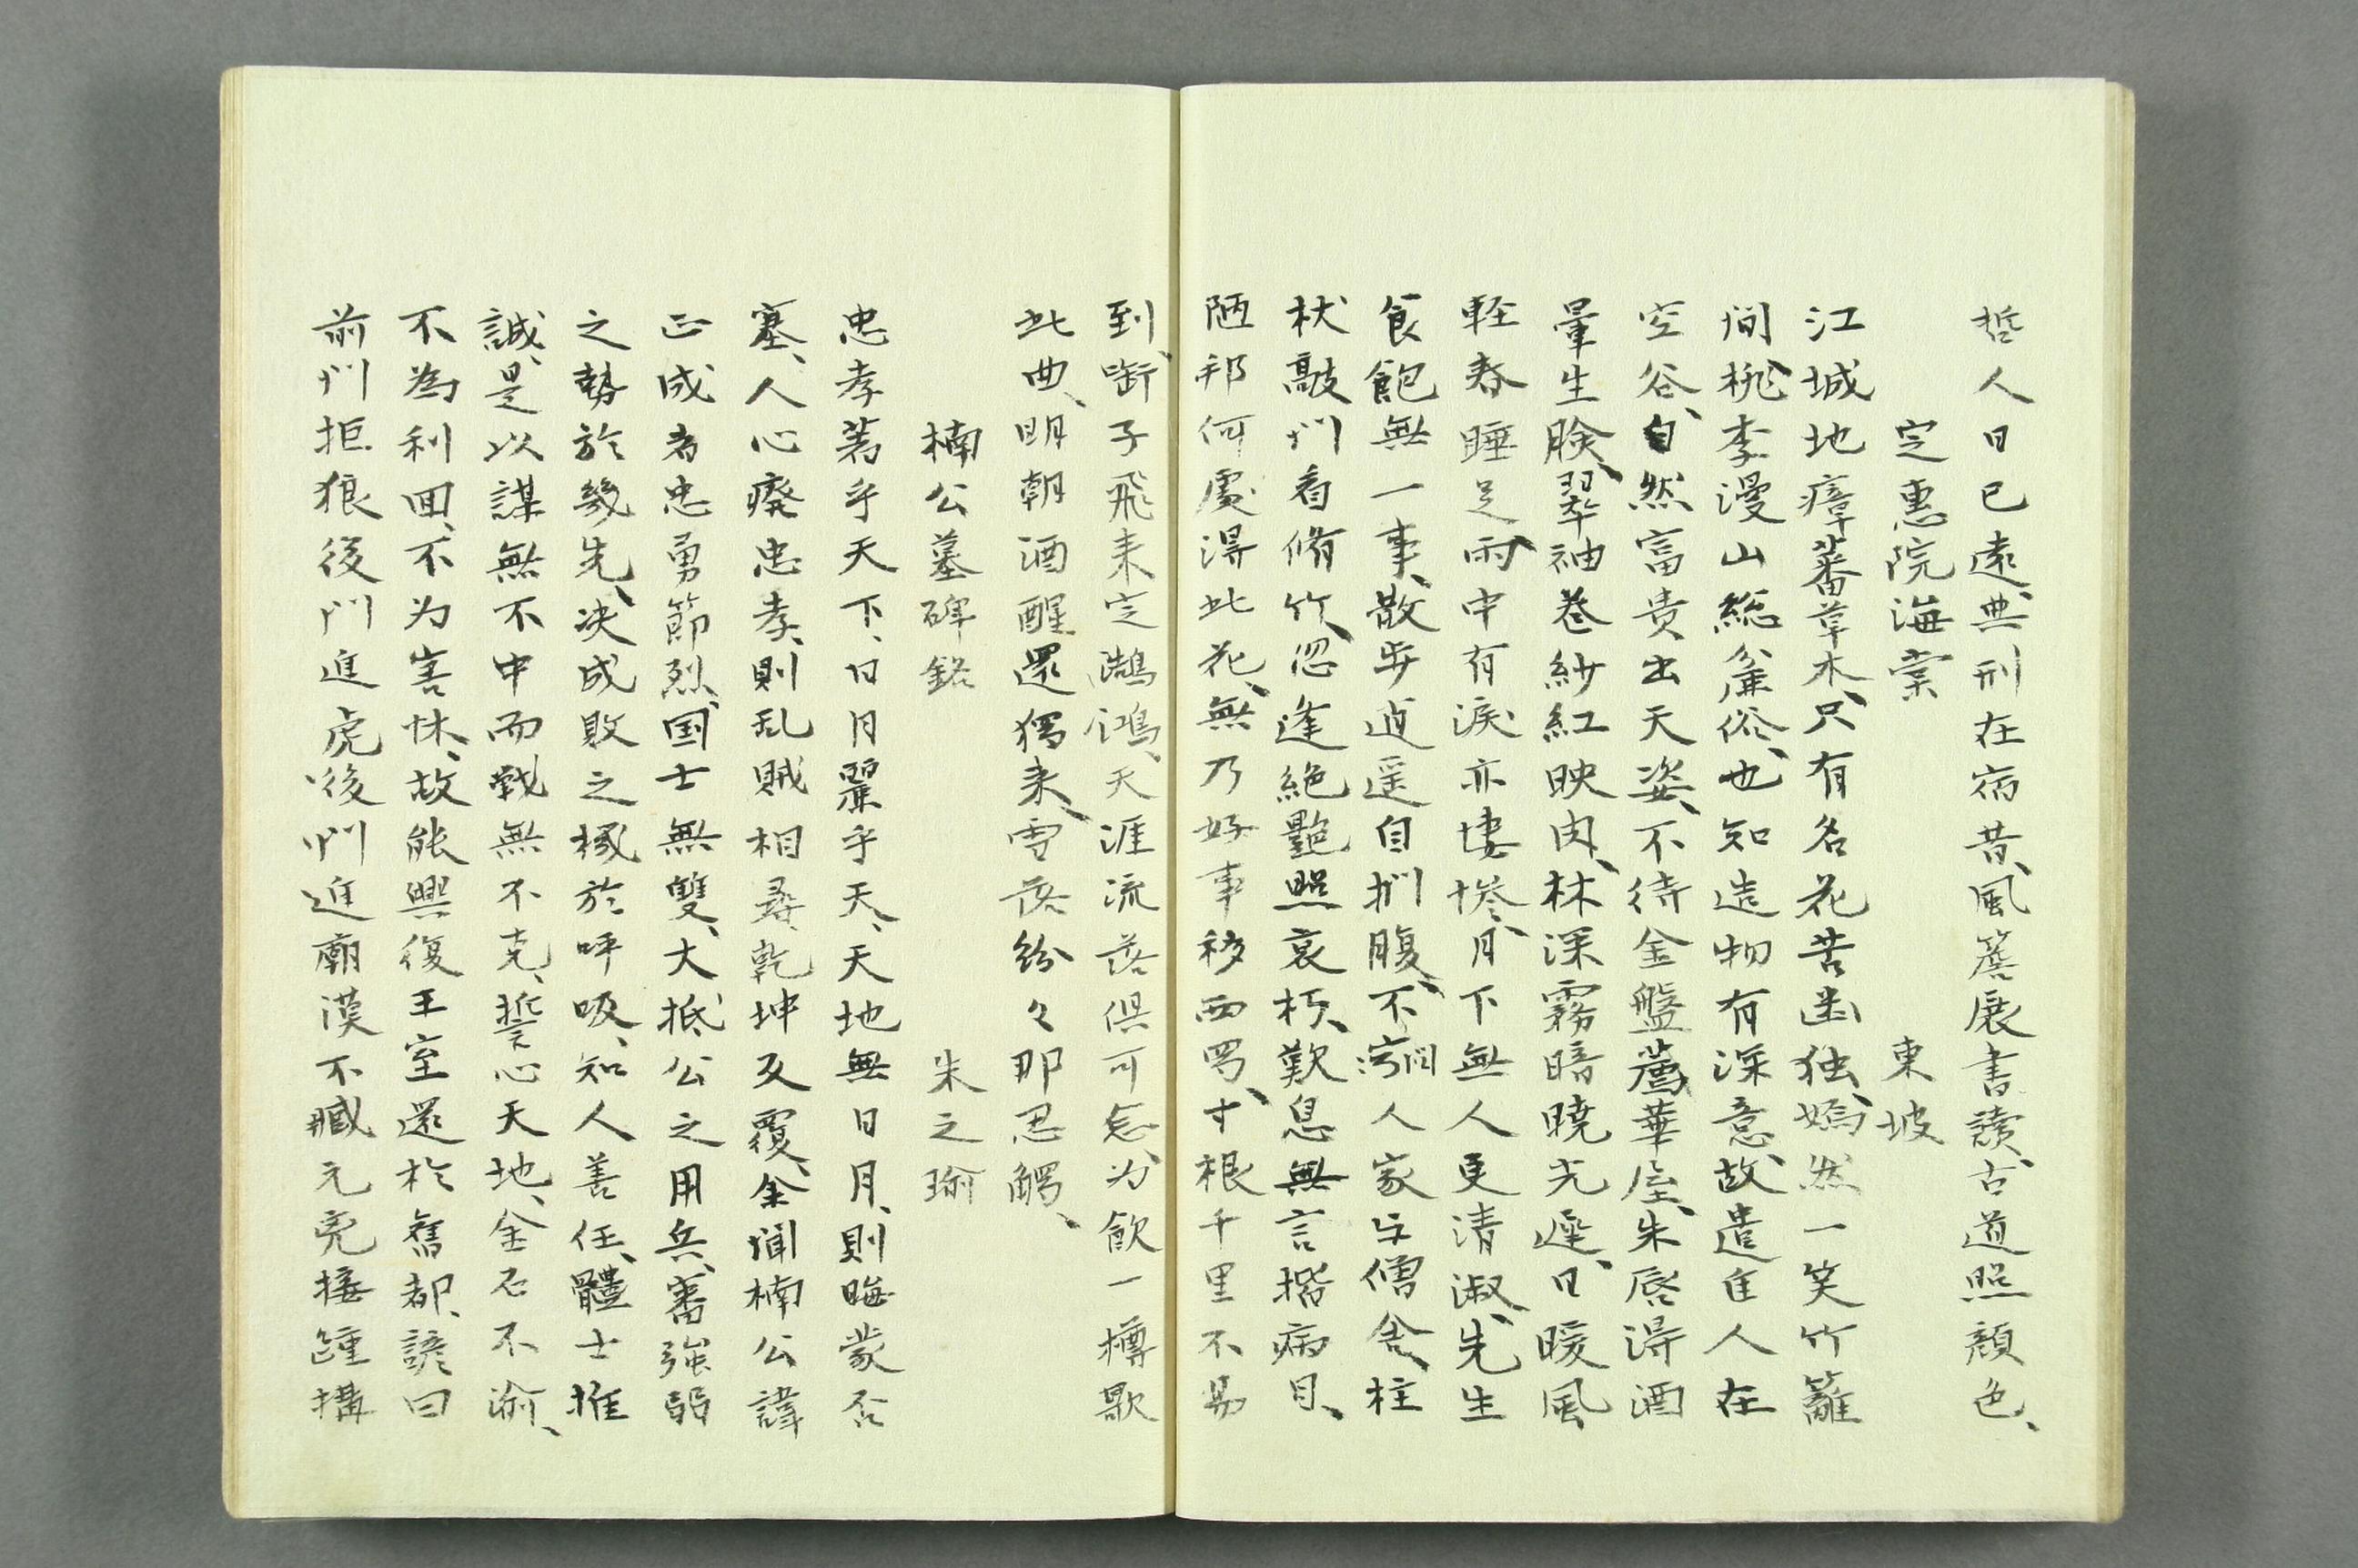 哲人日已遠、典刑在夙昔、風簷展書讀、古道照顔色、
定惠院海棠　東坡
江城地瘴蕃草木、只有名花苦幽独、嫣然一笑竹籬
間、桃李漫山総麁俗、也知造物有深意、故遣佳人在
空谷、自然富貴出天姿、不待金盤薦華屋、朱唇得酒
暈生臉、翠袖巻紗紅映肉、林深霧暗暁光遅、日暖風
軽春睡足、雨中有涙亦悽惨、月下無人更清淑、先生
食飽無一事、散歩逍遥自捫腹、不問人家与僧舎、柱
杖敲門看脩竹、忽逢絶艶照衰朽、歎息無言揩病目、
陋邦何處得此花、無乃好事移西蜀、寸根千里不易
到、啣子飛来定鴻鵠、天涯流落倶可念、为飲一樽歌
此曲、明朝酒醒還独来、雪落紛々那忍觸、
楠公墓碑銘　朱之瑜
忠孝著乎天下、日月麗乎天、天地無日月、則晦蒙否
塞、人心癈忠孝、則乱賊相尋、乾坤反覆、余聞楠公諱
正成者忠勇節烈、国士無雙、大抵公之用兵、審強弱
之勢於幾先、决成敗之機於呼吸、知人善任、體士推
誠、是以謀無不中而戦無不克、誓心天地、金石不渝、
不為利囬、不为害怵、故能興復王室還於舊都、諺曰
前門拒狼後門進虎後門進廟漠不臧元兇接踵構